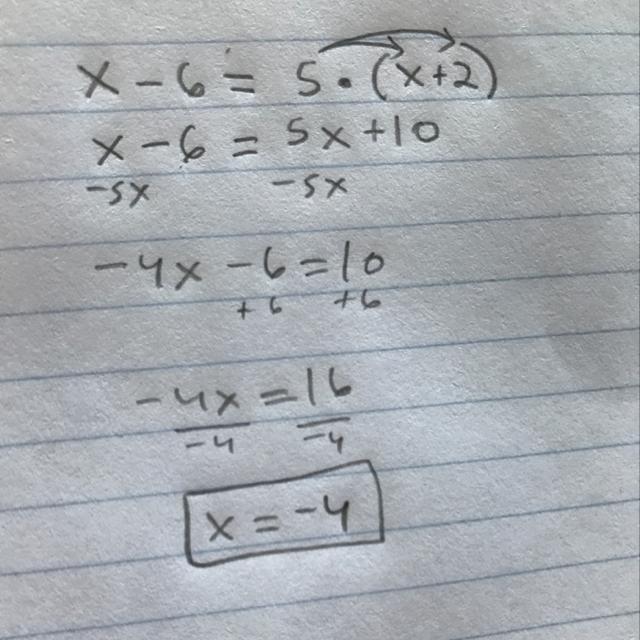 x - 6 = 5 • (x+2)
x - 6 = 5x +10
-5x -5x
-4x - 6 = 10
+6 +6
-4x = 16
-4 -4
x = -4